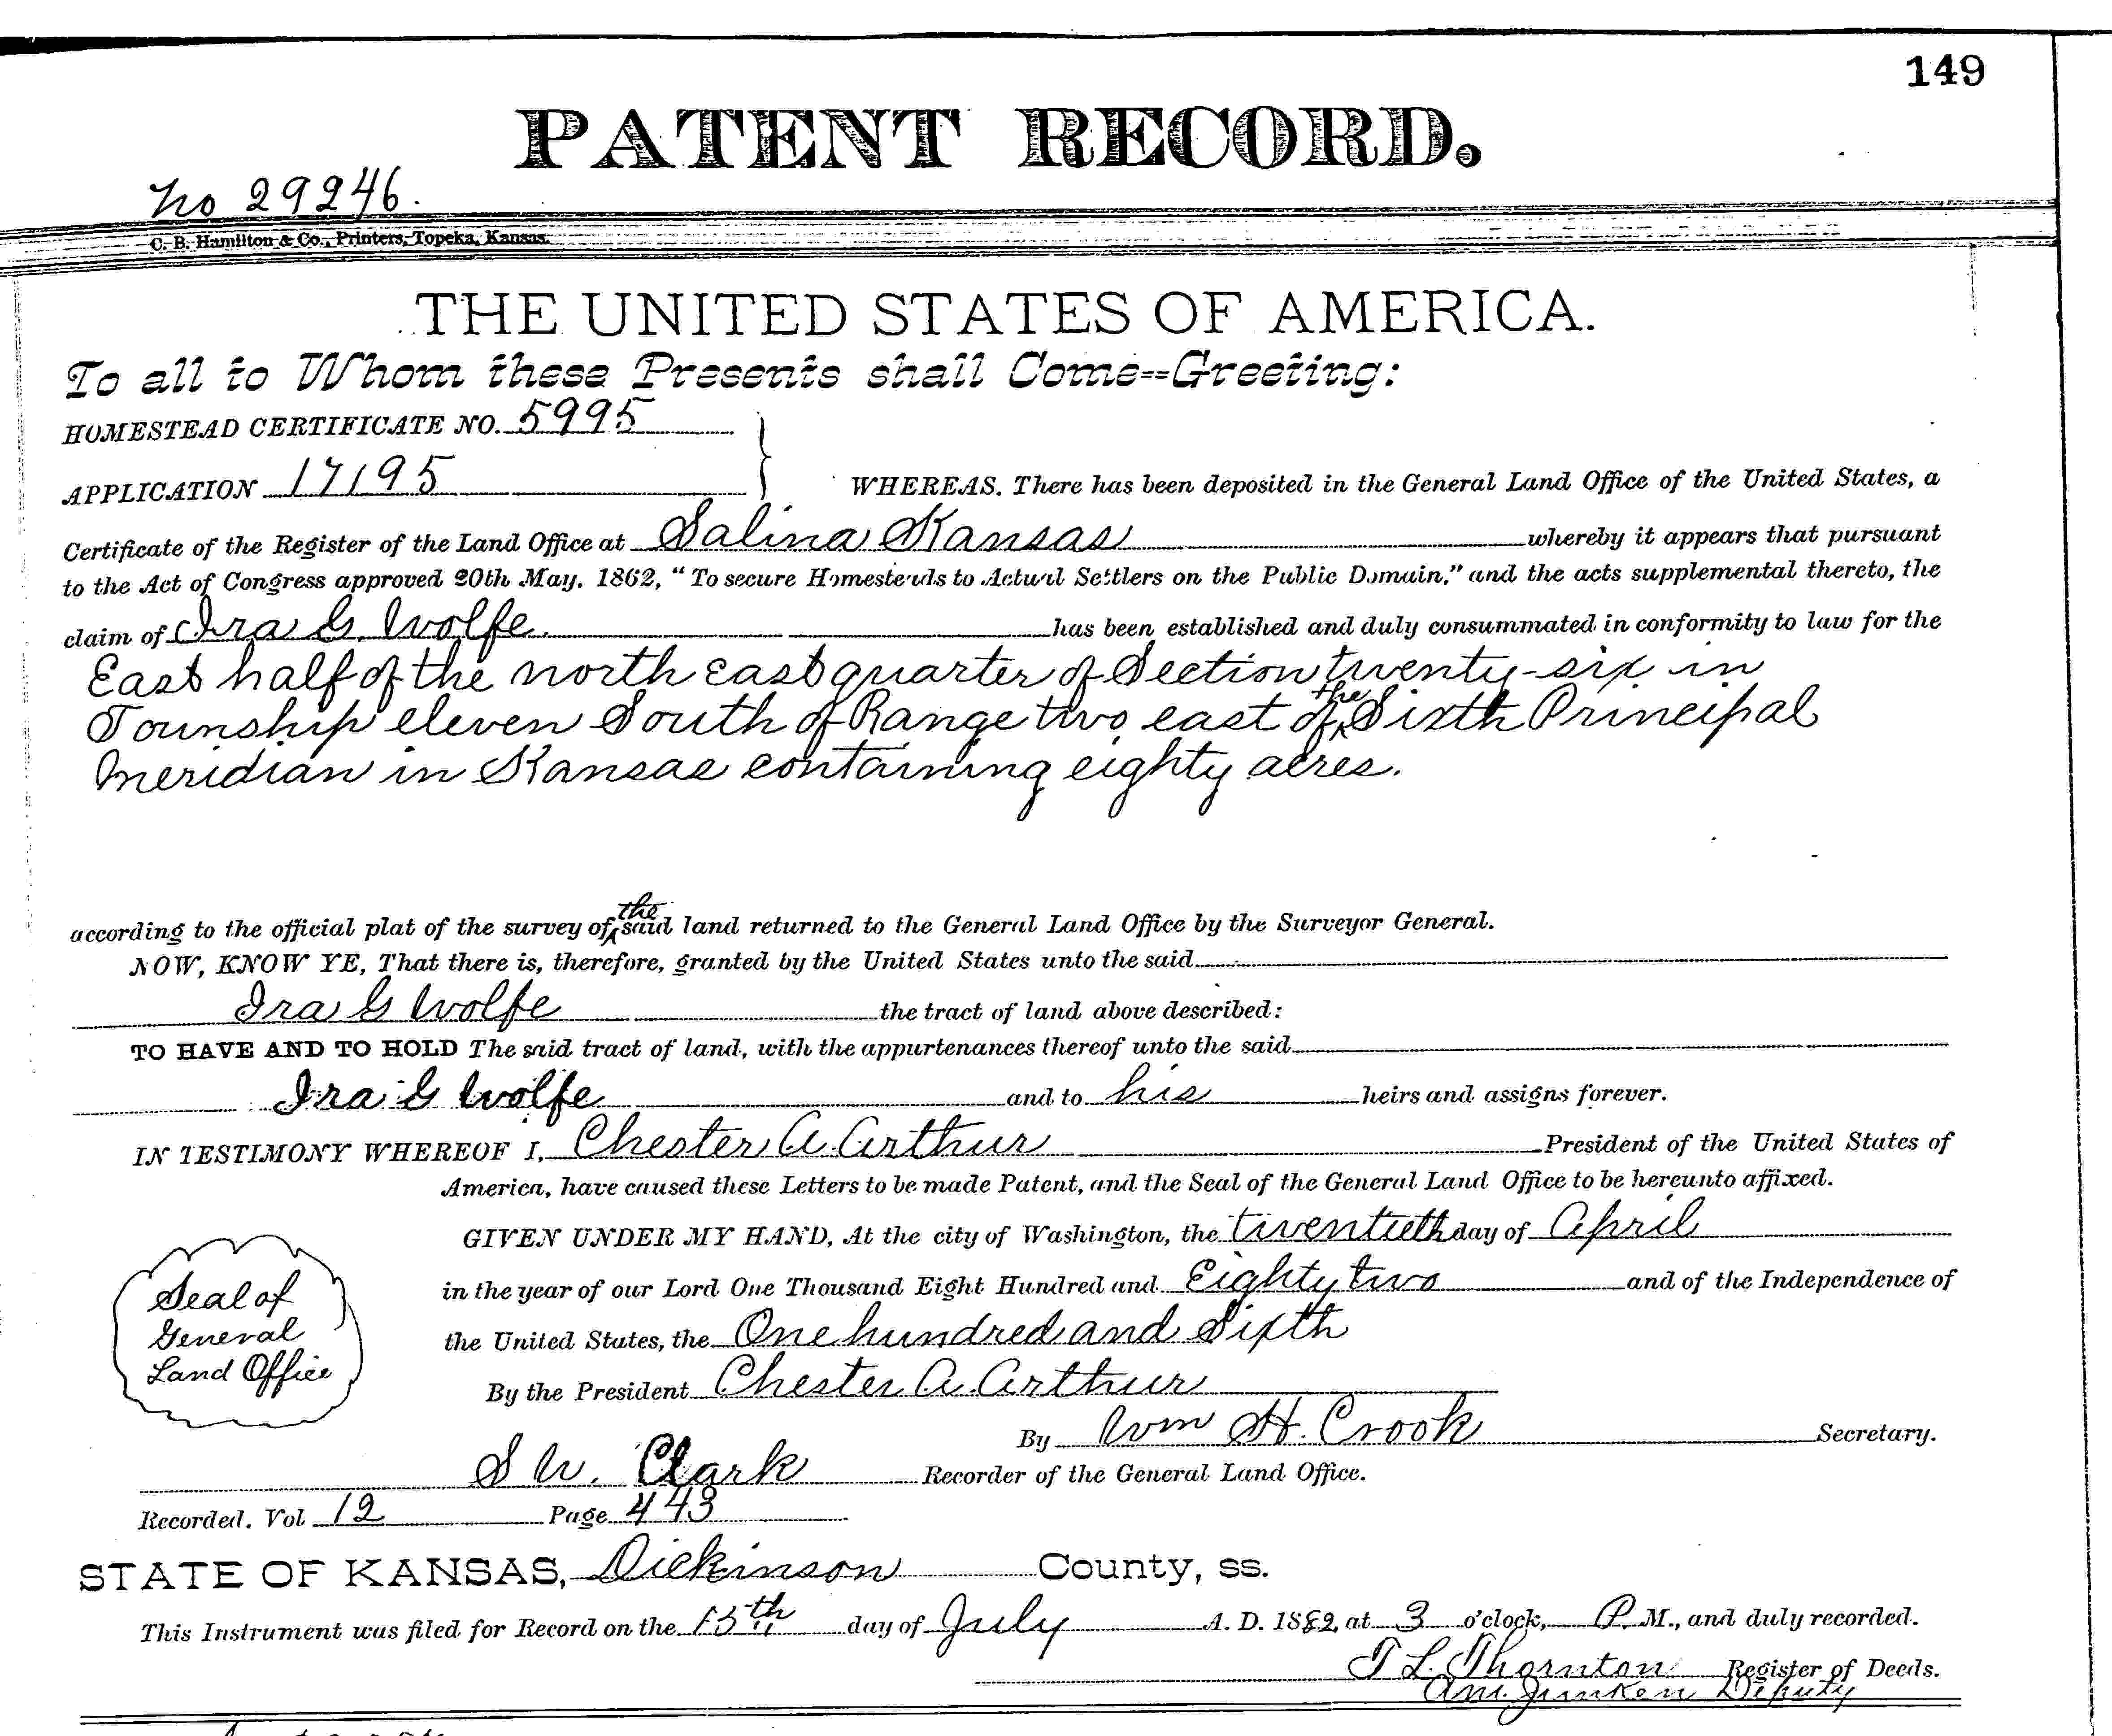 149
PATENT RECORD.
No 29246.
C. B. Hamilton & Co., Printers, Topeka, Kansas.
THE UNITED STATES OF AMERICA.
To all to Whom these Presents shall Come==Greeting:
HOMESTEAD CERTIFICATE NO. 5995
APPLICATION 17195
WHEREAS, There has been deposited in the General Land Office of the United States, a
Certificate of the Register of the Land Office at Salina Kansas whereby it appears that pursuant
to the Act of Congress approved 20th May, 1862, "To secure Homesteads to Actual Settlers on the Public Domain," and the acts supplemental thereto, the
claim of Ira G. Wolfe. has been established and duly consummated in conformity to law for the
East half of the north east quarter of Section twenty-six in
Township eleven South of Range two east of the Sixth Principal
Meridian in Kansas containing eighty acres.
according to the official plat of the survey of the said land returned to the General Land Office by the Surveyor General.
NOW, KNOW YE, That there is, therefore, granted by the United States unto the said
Ira G Wolfe the tract of land above described:
TO HAVE AND TO HOLD The said tract of land, with the appurtenances thereof unto the said
Ira G Wolfe and to his heirs and assigns forever.
IN TESTIMONY WHEREOF I, Chester A Arthur President of the United States of
America, have caused these Letters to be made Patent, and the Seal of the General Land Office to be hereunto affixed.
GIVEN UNDER MY HAND, At the city of Washington, the twentieth day of April
in the year of our Lord One Thousand Eight Hundred and Eighty two and of the Independence of
the United States, the One hundred and Sixth
Seal of
General
Land Office
By the President Chester A. Arthur
By Wm H. Crook Secretary.
S W. Clark Recorder of the General Land Office.
Recorded. Vol 12 Page 443
STATE OF KANSAS, Dickinson County, ss.
This Instrument was filed for Record on the 15th day of July A. D. 1882, at 3 o'clock, P. M., and duly recorded.
T L. Thornton Register of Deeds.
Junken Deputy